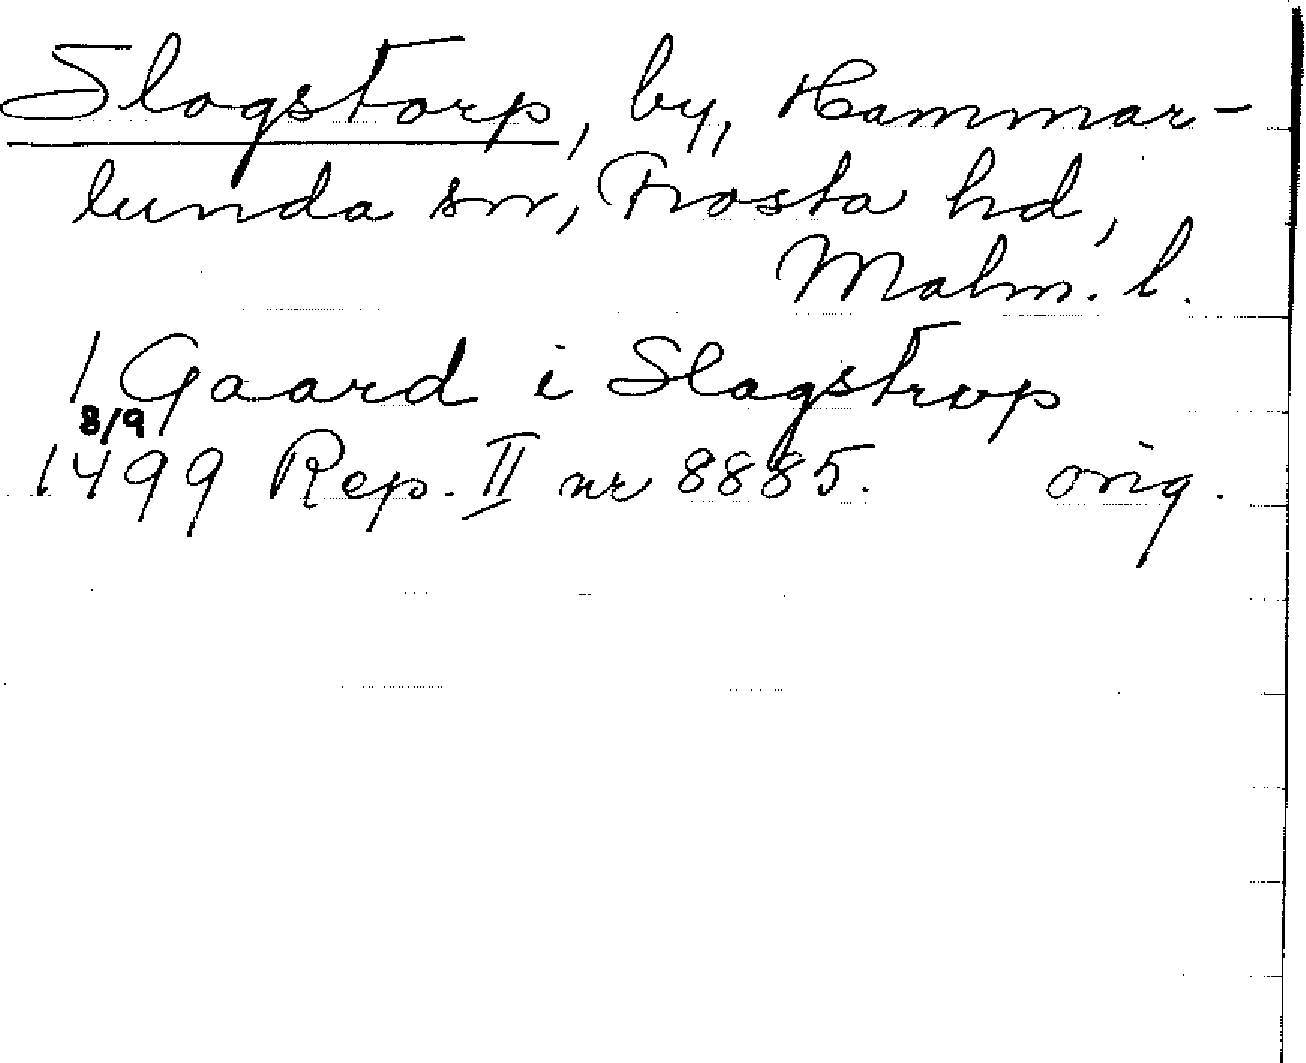 Slagstorp, by, Hammar-
lunda sn, Frosta hd,
Malm. l.
1 Gaard i Slagstrup
8/9
1499 Rep. II nr 8885. orig.